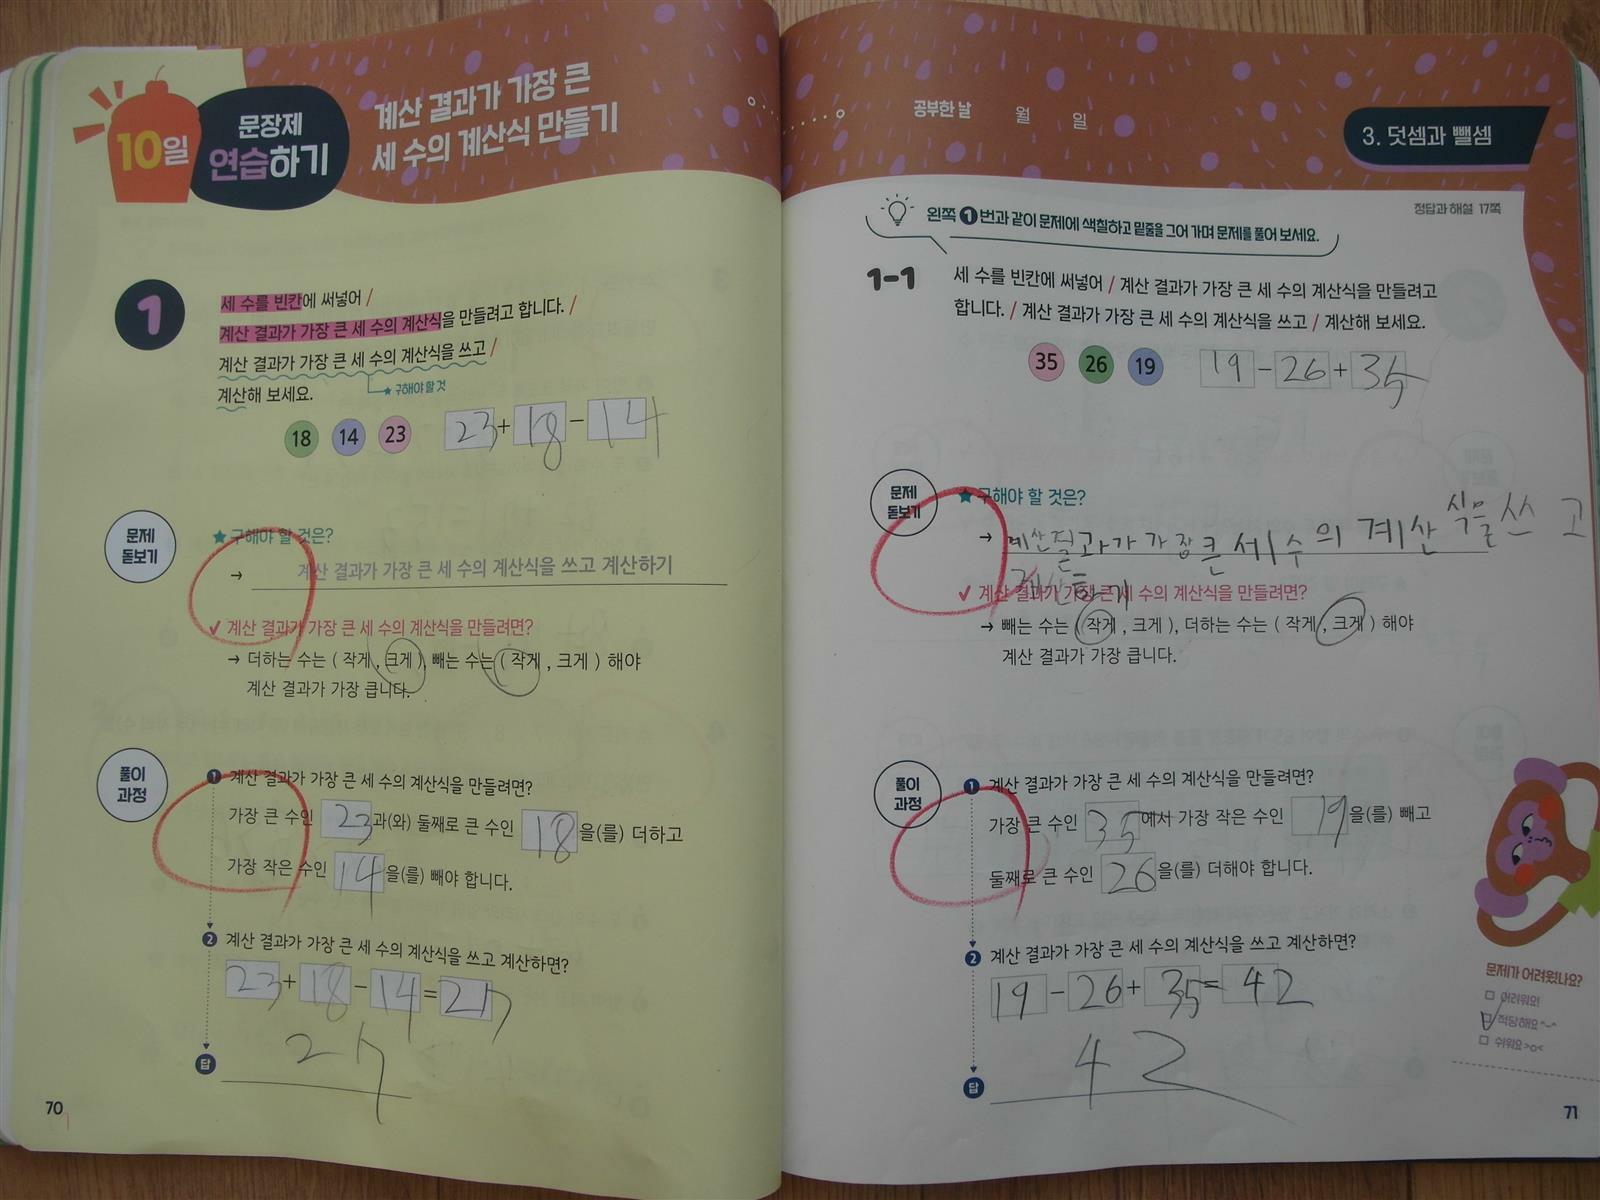 10일
문장제
연습하기
계산 결과가 가장 큰
세 수의 계산식 만들기
1
세 수를 빈칸에 써넣어 /
계산 결과가 가장 큰 세 수의 계산식을 만들려고 합니다. /
계산 결과가 가장 큰 세 수의 계산식을 쓰고 /
★ 구해야 할 것
계산해 보세요.
18 14 23 23 + 18 - 14
문제
돋보기
★ 구해야 할 것은?
→ 계산 결과가 가장 큰 세 수의 계산식을 쓰고 계산하기
✓ 계산 결과가 가장 큰 세 수의 계산식을 만들려면?
→ 더하는 수는 ( 작게 , 크게 ), 빼는 수는 ( 작게 , 크게 ) 해야
계산 결과가 가장 큽니다.
풀이
과정
❶ 계산 결과가 가장 큰 세 수의 계산식을 만들려면?
가장 큰 수인 23 과(와) 둘째로 큰 수인 18 을(를) 더하고
가장 작은 수인 14 을(를) 빼야 합니다.
❷ 계산 결과가 가장 큰 세 수의 계산식을 쓰고 계산하면?
23 + 18 - 14 = 27
답 27
70
공부한 날 월 일
3. 덧셈과 뺄셈
정답과 해설 17쪽
왼쪽 ❶번과 같이 문제에 색칠하고 밑줄을 그어 가며 문제를 풀어 보세요.
1-1
세 수를 빈칸에 써넣어 / 계산 결과가 가장 큰 세 수의 계산식을 만들려고
합니다. / 계산 결과가 가장 큰 세 수의 계산식을 쓰고 / 계산해 보세요.
35 26 19 19 - 26 + 35
문제
돋보기
★ 구해야 할 것은?
→ 계산결과가 가장큰세수의계산식을쓰고
계산하기
✓ 계산 결과가 가장 큰 세 수의 계산식을 만들려면?
→ 빼는 수는 ( 작게 , 크게 ), 더하는 수는 ( 작게 , 크게 ) 해야
계산 결과가 가장 큽니다.
풀이
과정
❶ 계산 결과가 가장 큰 세 수의 계산식을 만들려면?
가장 큰 수인 35 에서 가장 작은 수인 19 을(를) 빼고
둘째로 큰 수인 26 을(를) 더해야 합니다.
❷ 계산 결과가 가장 큰 세 수의 계산식을 쓰고 계산하면?
19 - 26 + 35 = 42
답 42
문제가 어려웠나요?
어려워요!
적당해요^-^
쉬워요>o<
71